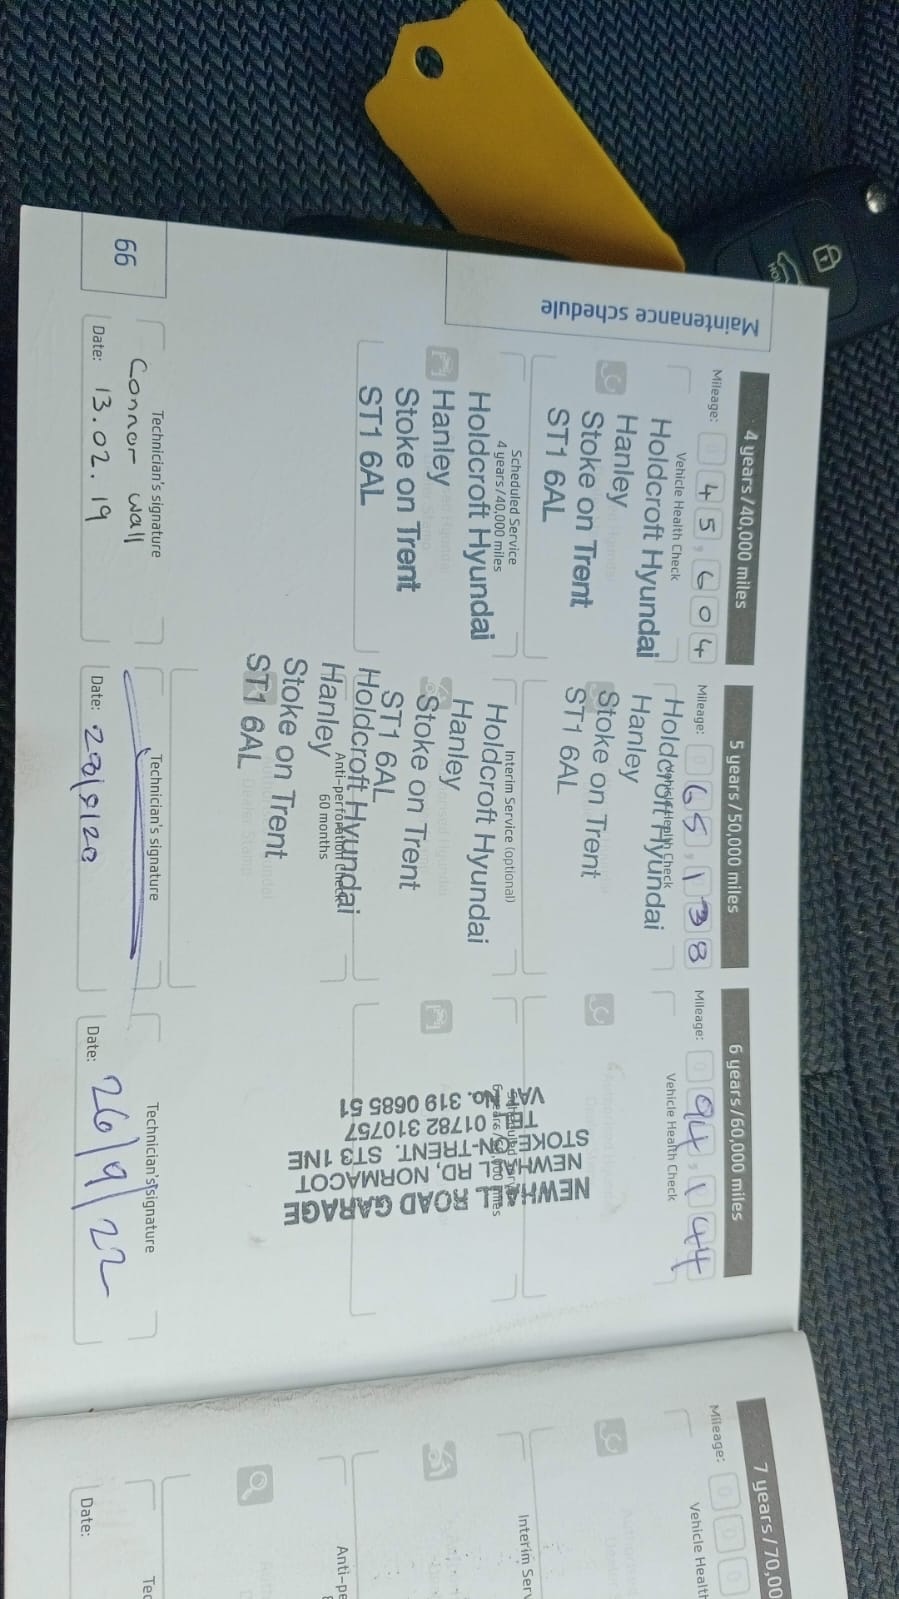 Maintenance schedule
4 years/40,000 miles
Mileage: 045,604
Vehicle Health Check
Holdcroft Hyundai
Hanley
Stoke on Trent
ST1 6AL
Scheduled Service
4 years/40,000 miles
Holdcroft Hyundai
Hanley
Stoke on Trent
ST1 6AL
Technician's signature
Connor Wall
Date: 13.02.19
66
5 years/50,000 miles
Mileage: 065,138
Vehicle Health Check
Holdcroft Hyundai
Hanley
Stoke on Trent
ST1 6AL
Interim Service (optional)
Holdcroft Hyundai
Hanley
Stoke on Trent
ST1 6AL
Anti-perforation check
60 months
Holdcroft Hyundai
Hanley
Stoke on Trent
ST1 6AL
Technician's signature
Date:
6 years/60,000 miles
Mileage: 094,144
Vehicle Health Check
Scheduled Service
6 years/60,000 miles
NEWHALL ROAD GARAGE
NEWHALL RD, NORMACOT
STOKE-ON-TRENT. ST3 1NE
TEL: 01782 310757
VAT No. 319 0685 51
Technician's signature
Date: 26/9/22
7 years/70,00
Mileage: 000
Vehicle Health
Interim Serv
Anti-pe
Tec
Date: